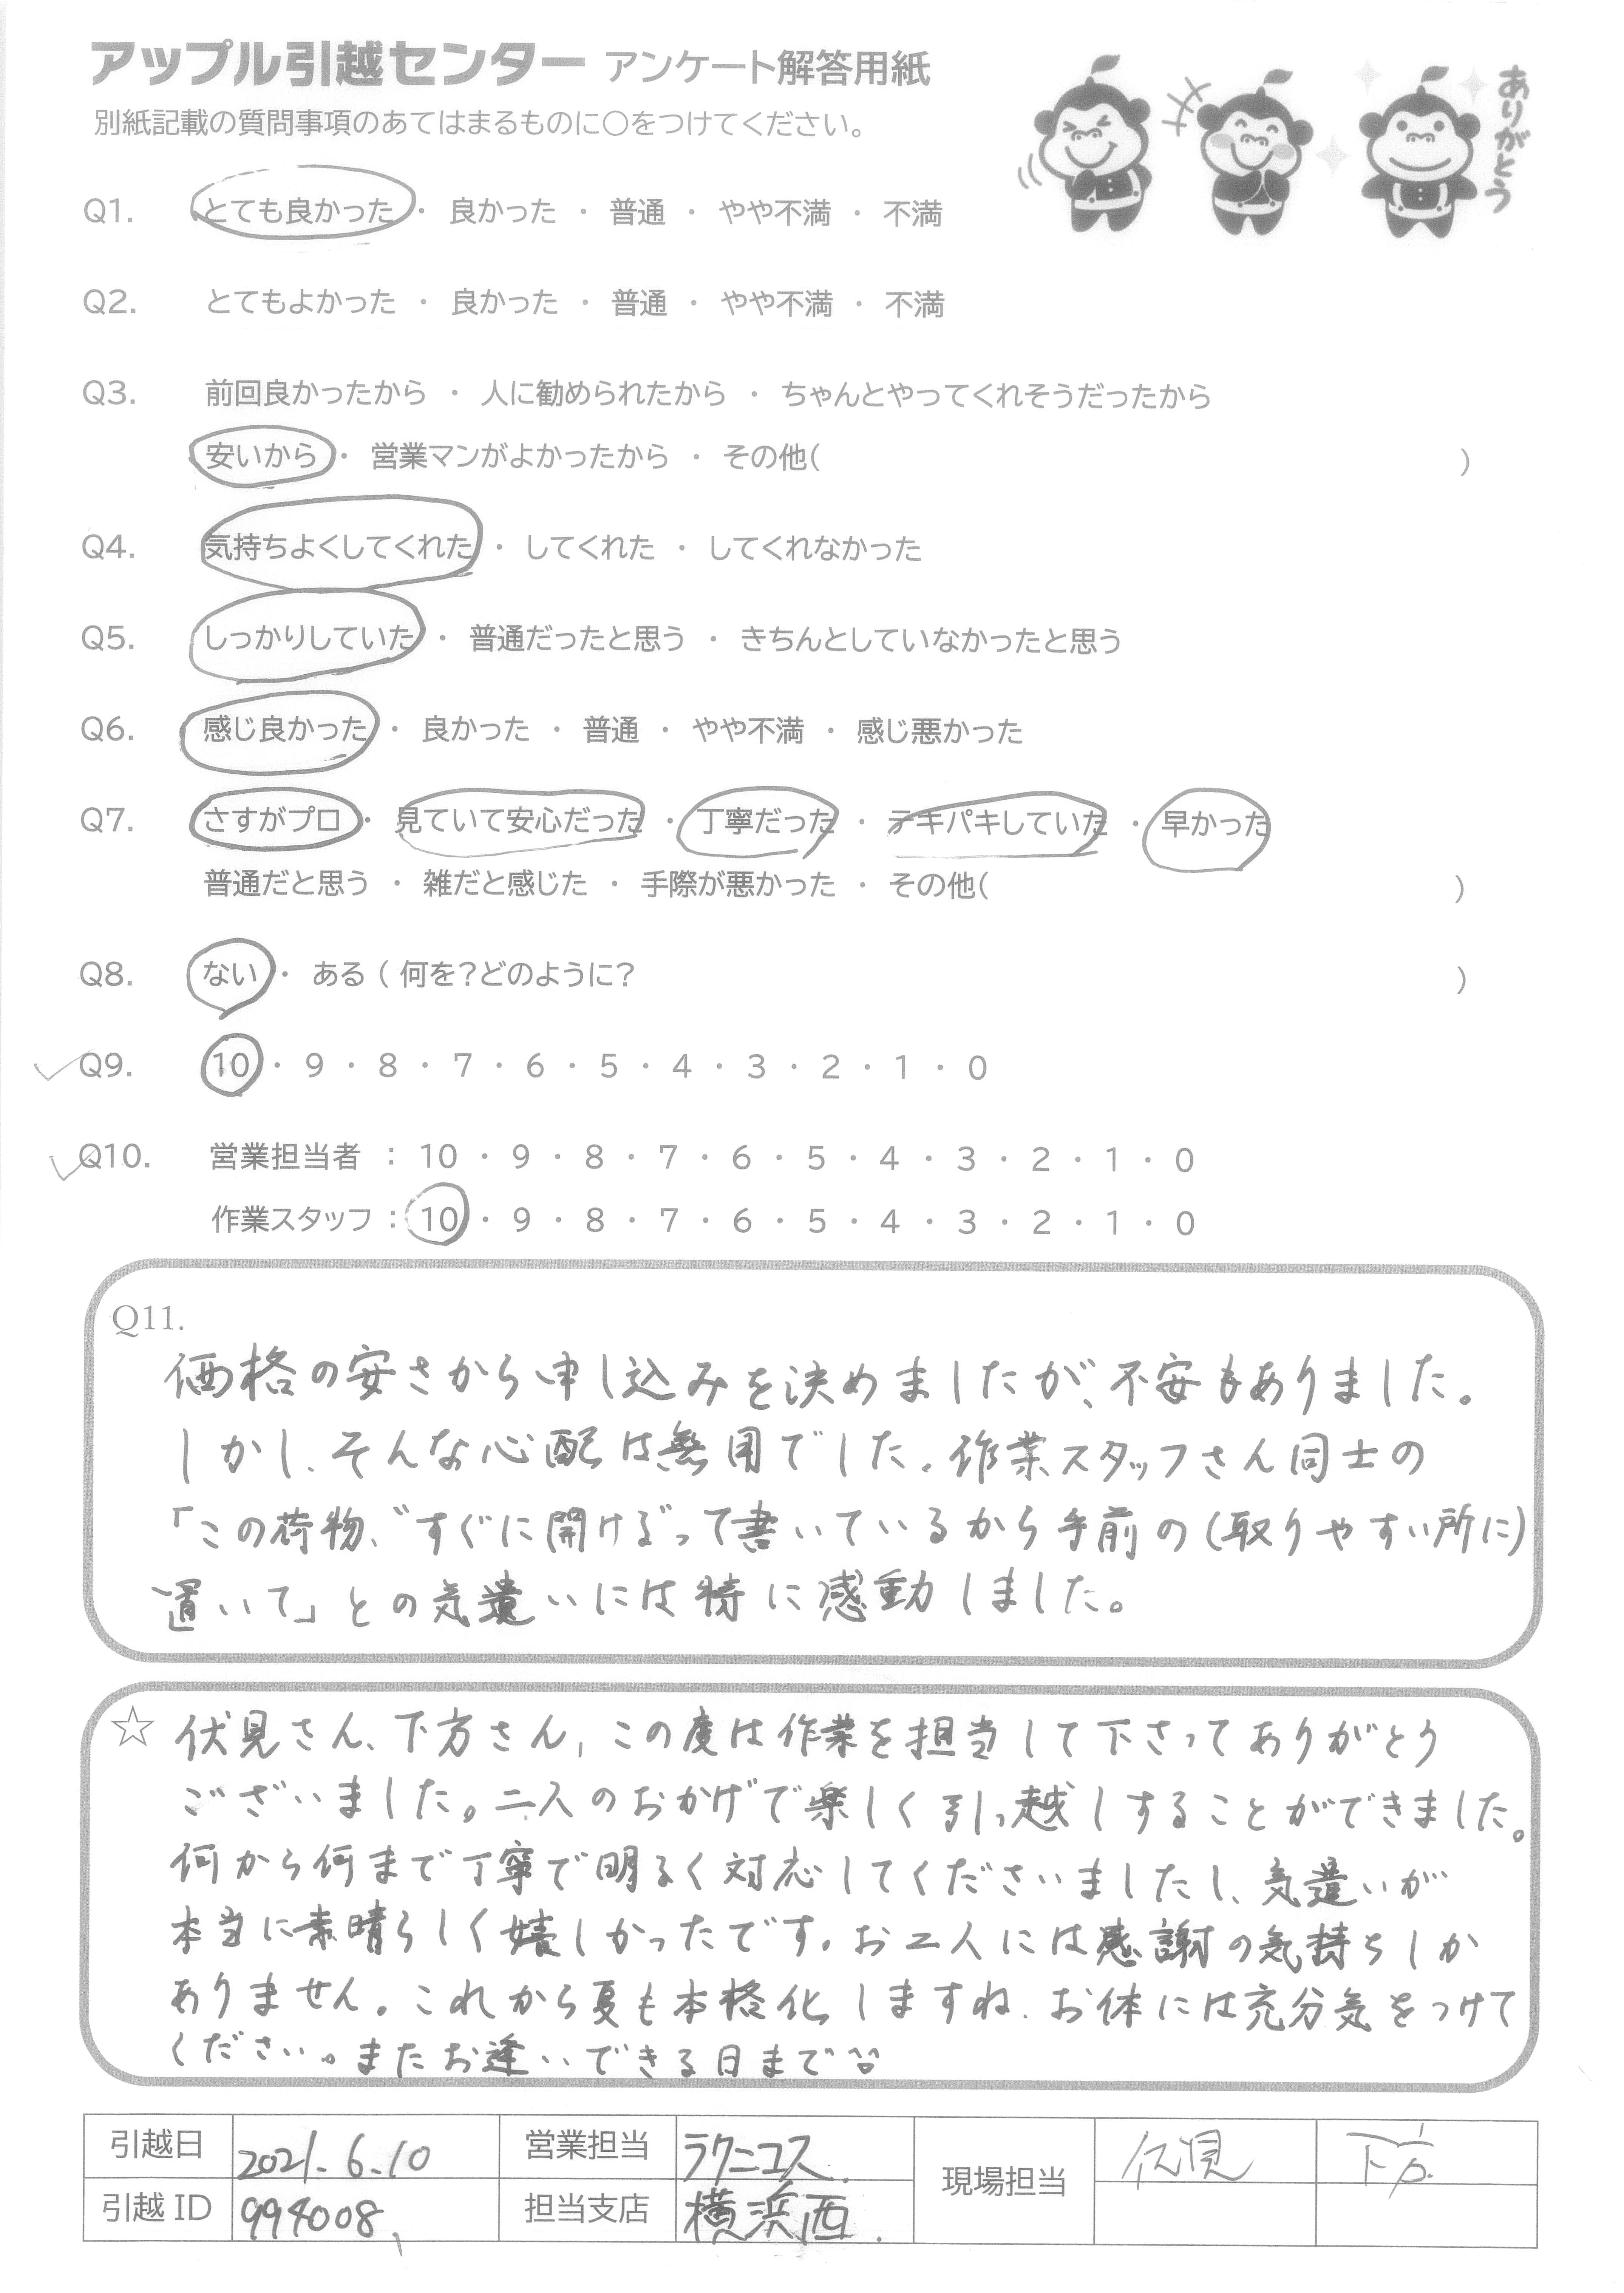 アップル引越センター アンケート解答用紙
別紙記載の質問事項のあてはまるものに○をつけてください。
ありがとう
Q1. とても良かった ・ 良かった ・ 普通 ・ やや不満 ・ 不満
Q2. とてもよかった ・ 良かった ・ 普通 ・ やや不満 ・ 不満
Q3. 前回良かったから ・ 人に勧められたから ・ ちゃんとやってくれそうだったから
安いから ・ 営業マンがよかったから ・ その他( )
Q4. 気持ちよくしてくれた ・ してくれた ・ してくれなかった
Q5. しっかりしていた ・ 普通だったと思う ・ きちんとしていなかったと思う
Q6. 感じ良かった ・ 良かった ・ 普通 ・ やや不満 ・ 感じ悪かった
Q7. さすがプロ ・ 見ていて安心だった ・ 丁寧だった ・ テキパキしていた ・ 早かった
普通だと思う ・ 雑だと感じた ・ 手際が悪かった ・ その他( )
Q8. ない ・ ある ( 何を?どのように? )
Q9. 10 ・ 9 ・ 8 ・ 7 ・ 6 ・ 5 ・ 4 ・ 3 ・ 2 ・ 1 ・ 0
Q10. 営業担当者 : 10 ・ 9 ・ 8 ・ 7 ・ 6 ・ 5 ・ 4 ・ 3 ・ 2 ・ 1 ・ 0
作業スタッフ : 10 ・ 9 ・ 8 ・ 7 ・ 6 ・ 5 ・ 4 ・ 3 ・ 2 ・ 1 ・ 0
Q11.
価格の安さから申し込みを決めましたが、不安もありました。
しかし、そんな心配は無用でした。作業スタッフさん同士の
「この荷物、"すぐに開ける"って書いているから手前の(取りやすい所に)
置いて」との気遣いには特に感動しました。
☆ 伏見さん、下方さん、この度は作業を担当して下さってありがとう
ございました。二人のおかげで楽しく引っ越しすることができました。
何から何まで丁寧で明るく対応してくださいましたし、気遣いが
本当に素晴らしく嬉しかったです。お二人には感謝の気持ちしか
ありません。これから夏も本格化しますね。お体には充分気をつけて
ください。またお逢いできる日まで
引越日 2021.6.10 営業担当 ラクニコス. 現場担当 伏見 下方
引越ID 994008 担当支店 横浜西.